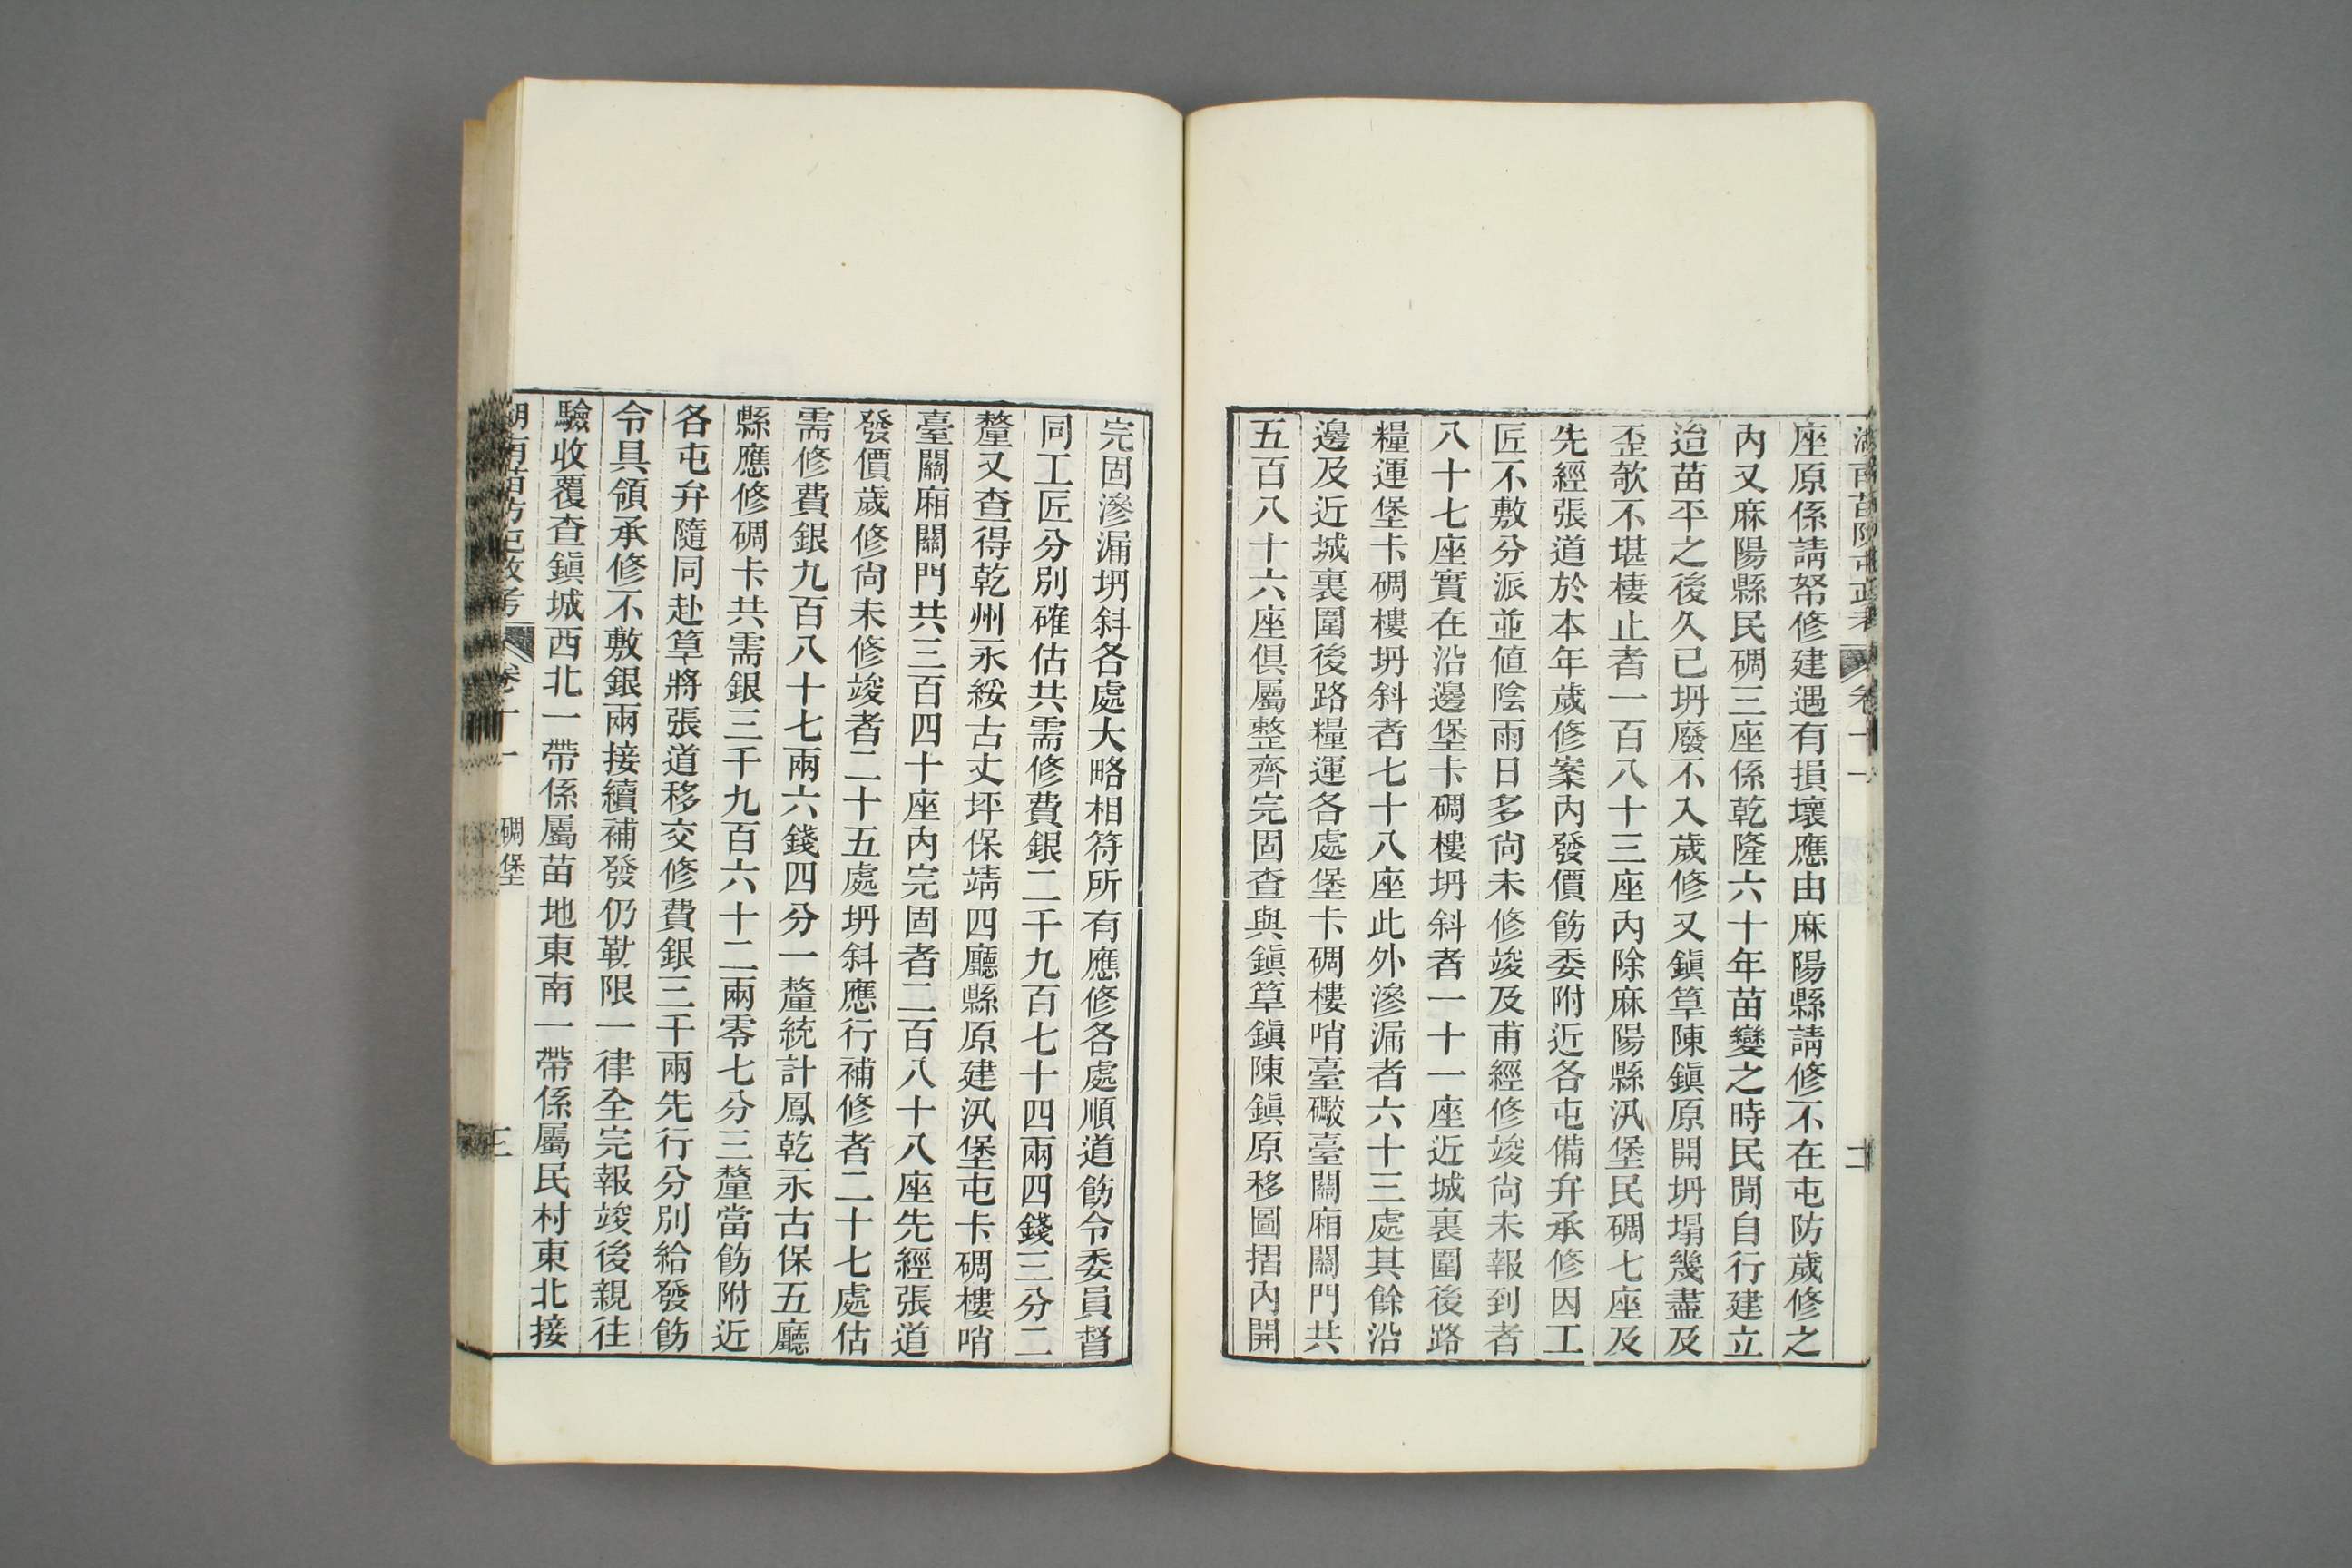 座原係請帑修建遇有損壞應由麻陽縣請修不在屯防歲修之
內又麻陽縣民碉三座係乾隆六十年苗變之時民間自行建立
迨苗平之後久已坍廢不入歲修又鎮筸陳鎮原開坍塌幾盡及
歪欹不堪棲止者一百八十三座內除麻陽縣汛堡民碉七座及
先經張道於本年歲修案內發價飭委附近各屯備弁承修因工
匠不敷分派並値陰雨日多尙未修竣及甫經修竣尙未報到者
八十七座實在沿邊堡卡碉樓坍斜者一十一座近城裏圍後路
糧運堡卡碉樓坍斜者七十八座此外滲漏者六十三處其餘沿
邊及近城裏圍後路糧運各處堡卡碉樓哨臺礮臺關廂關門共
五百八十六座俱屬整齊完固查與鎮筸鎮陳鎮原移圖摺內開
完固滲漏坍斜各處大略相符所有應修各處順道飭令委員督
同工匠分別確估共需修費銀二千九百七十四兩四錢三分二
釐又查得乾州永綏古丈坪保靖四廳縣原建汛堡屯卡碉樓哨
臺關廂關門共三百四十座內完固者二百八十八座先經張道
發價歲修尙未修竣者二十五處坍斜應行補修者二十七處估
需修費銀九百八十七兩六錢四分一釐統計鳳乾永古保五廳
縣應修碉卡共需銀三千九百六十二兩零七分三釐當飭附近
各屯弁隨同赴筸將張道移交修費銀三千兩先行分別給發飭
令具領承修不敷銀兩接續補發仍勒限一律全完報竣後親往
驗收覆查鎮城西北一帶係屬苗地東南一帶係屬民村東北接
湖南苗防屯政考 卷十一 碉堡 三